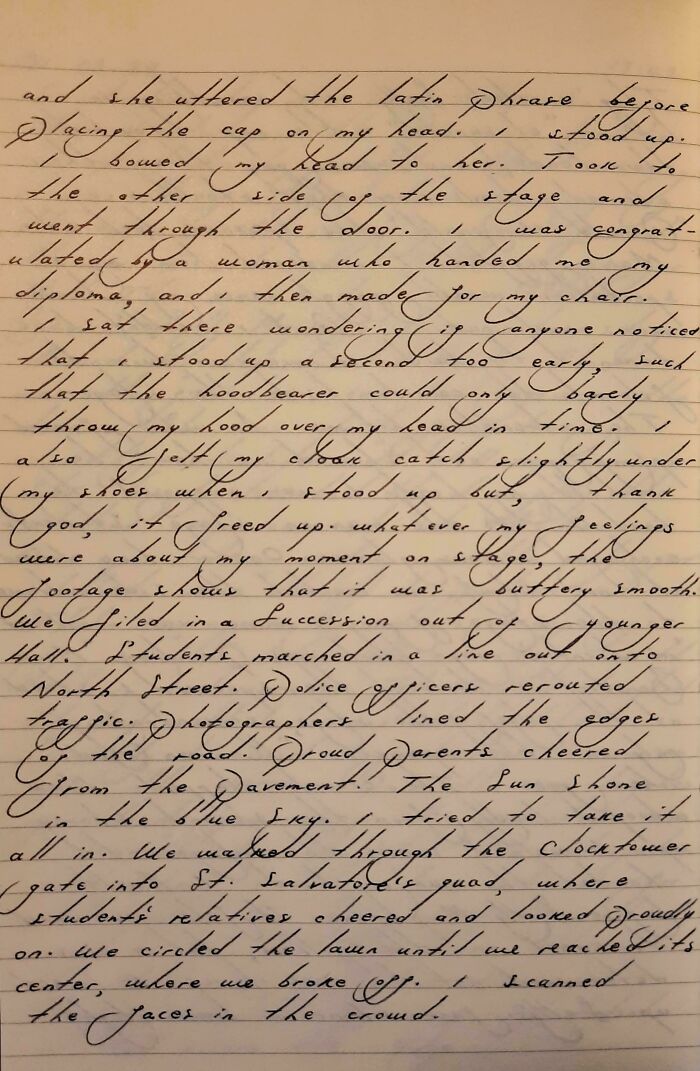 and she uttered the latin Phrase before
Placing the cap on my head. I stood up.
I bowed my head to her. Took to
the other side of the stage and
went through the door. I was congrat-
ulated by a woman who handed me my
diploma, and I then made for my chair.
I sat there wondering if anyone noticed
that I stood up a second too early, such
that the hoodbearer could only barely
throw my hood over my head in time. I
also felt my cloak catch slightly under
my shoes when I stood up but, thank
god, it freed up. whatever my feelings
were about my moment on stage, the
footage shows that it was buttery smooth.
We filed in a Succession out of younger
Hall. Students marched in a line out onto
North Street. Police officers rerouted
traffic. Photographers lined the edges
of the road. Proud Parents cheered
from the Pavement. The Sun Shone
in the blue Sky. I tried to take it
all in. We walked through the Clocktower
gate into St. Salvatore's quad, where
students' relatives cheered and looked Proudly
on. We circled the lawn until we reached its
center, where we broke off. I scanned
the faces in the crowd.